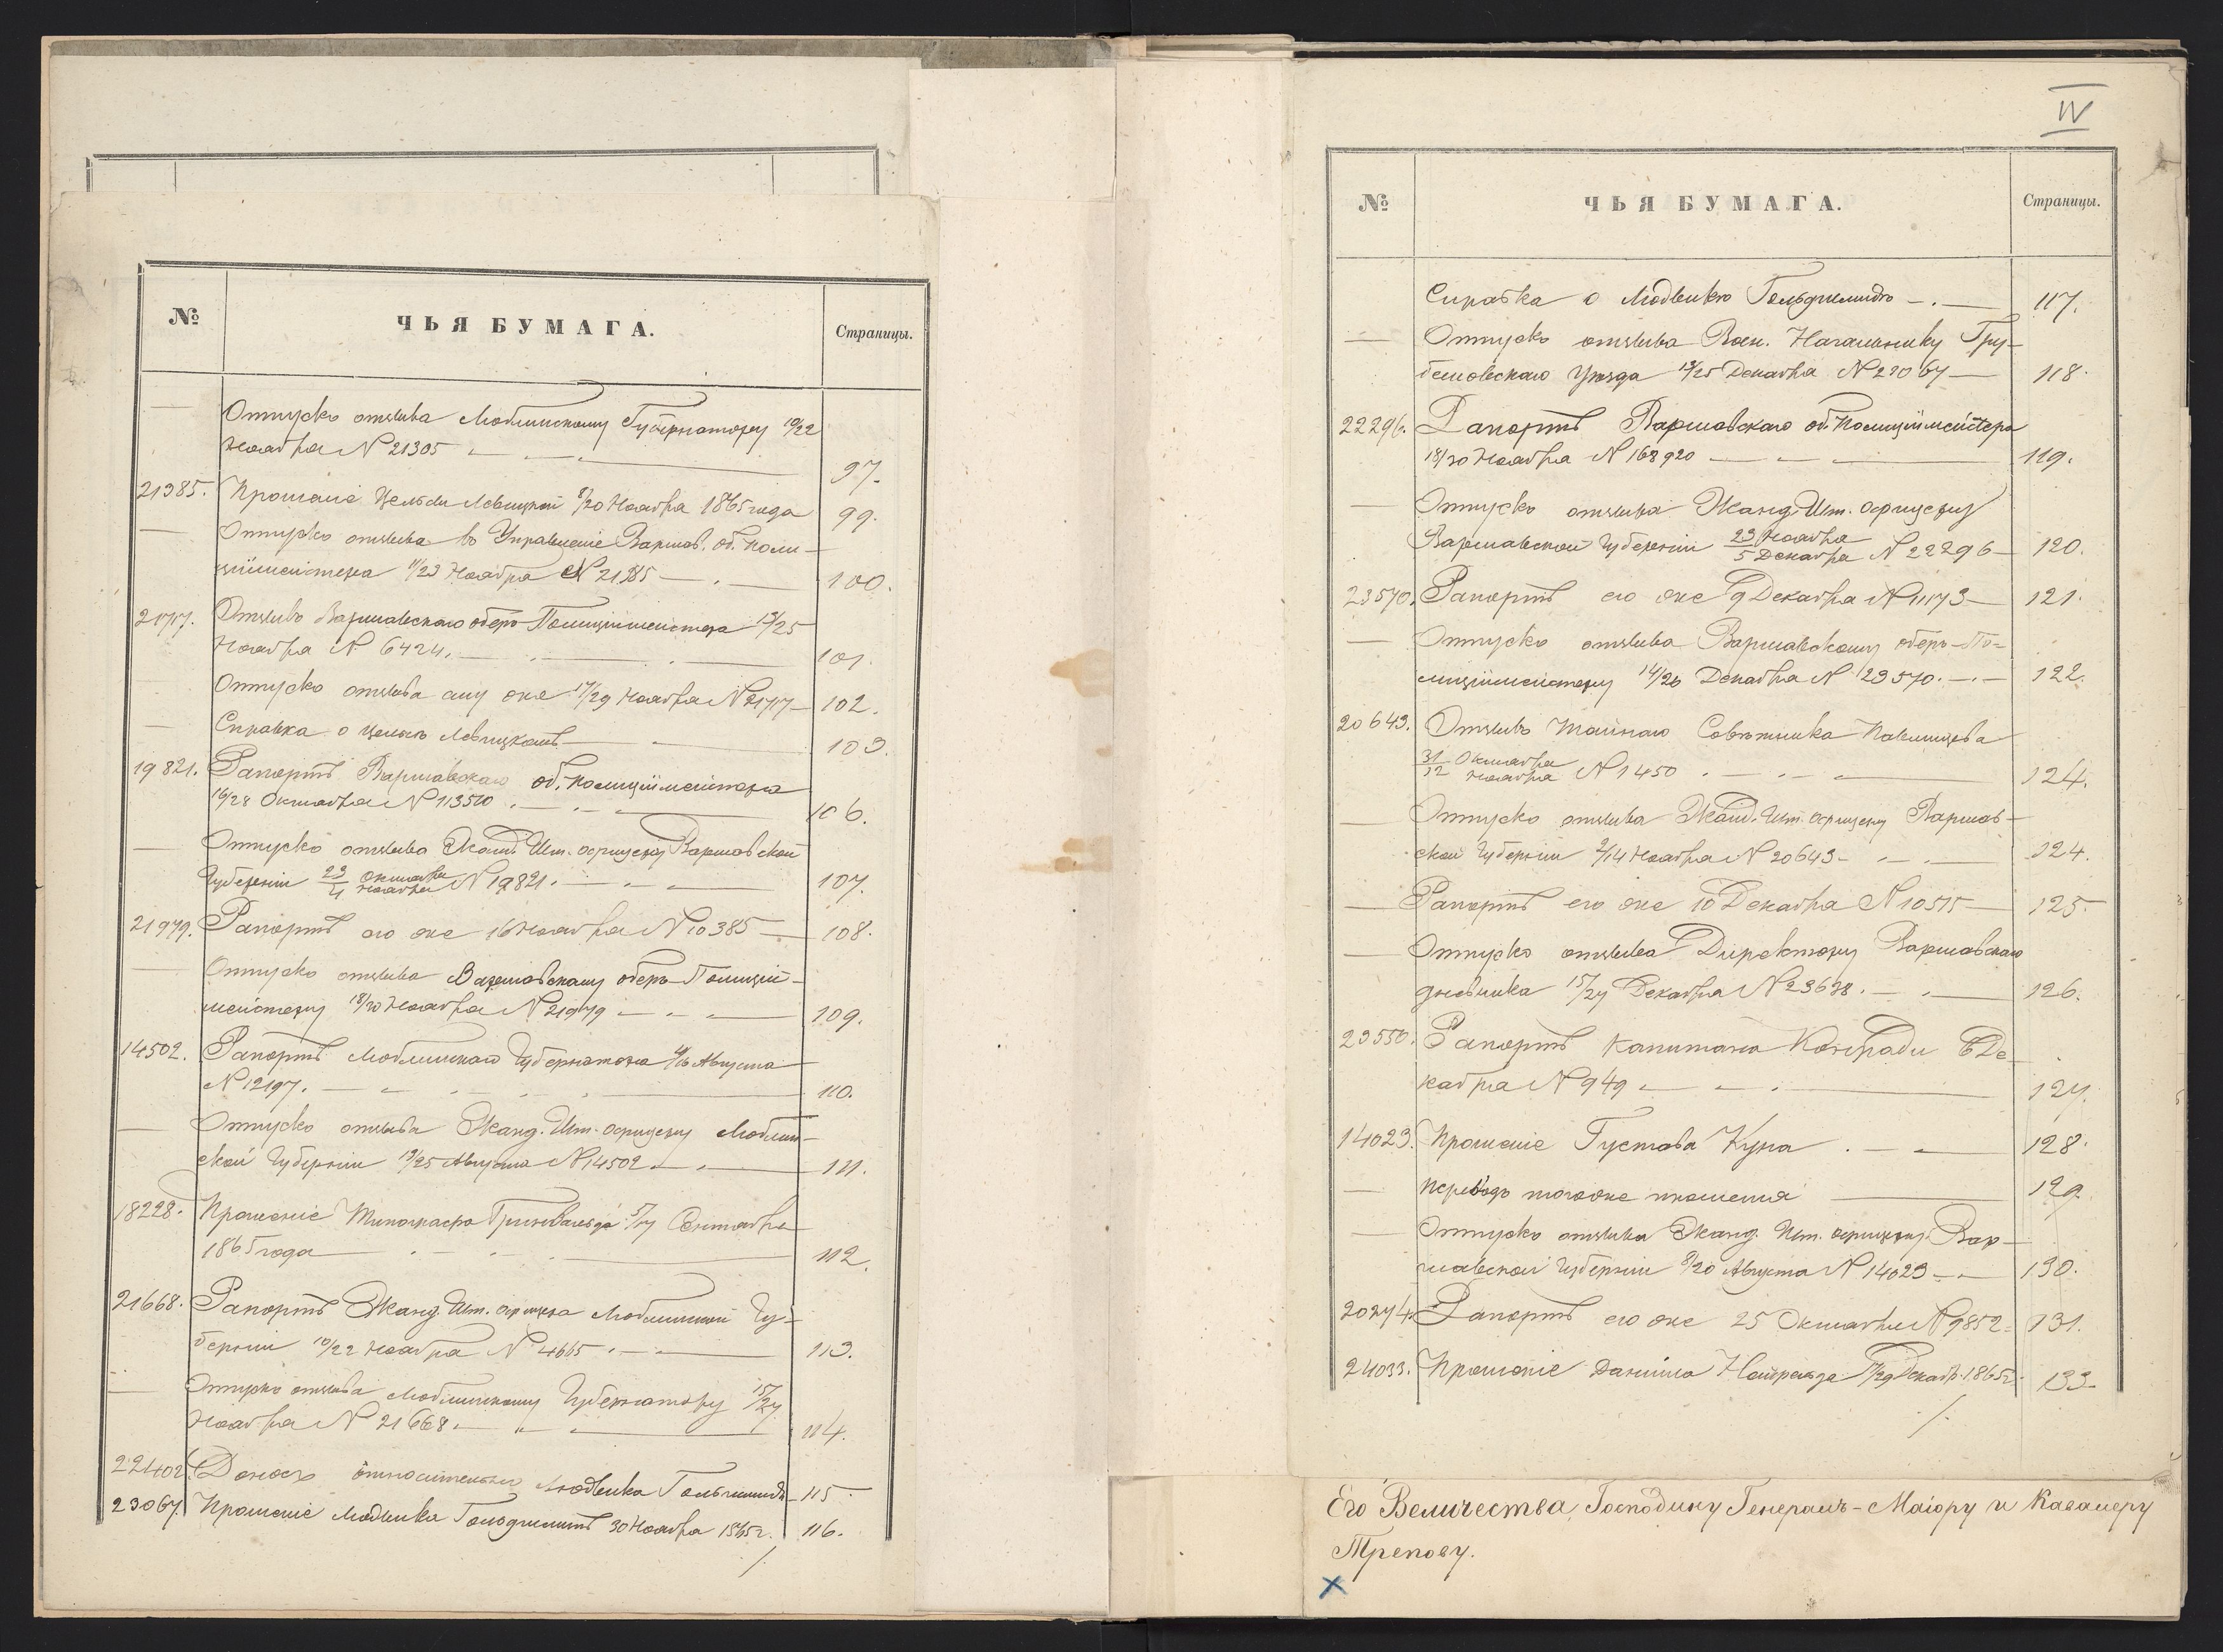 № ЧЬЯ БУМАГА. Страницы.
— Отпускъ отзыва Люблинскому Губернатору 10/22
Ноября № 21305 — 97.
21385. Прошеніе Цельси Левицкой 8/20 Ноября 1865 года 99.
— Отпускъ отзыва въ Управленіе Варшав. об. Поли-
ціймейстера 11/23 Ноября № 21385 — 100.
21717. Отзывъ Варшавскаго оберъ-Полиціймейстера 13/25
Ноября № 6424. — 101.
Отпускъ отзыва ему же 17/29 Ноября № 21717 — 102.
— Справка о Левицкой — 103.
19821. Рапортъ Варшавскаго об. Полиціймейстера
16/28 Октября № 113510. — 106.
— Отпускъ отзыва Жанд. Шт. офицеру Варшавской
Губерніи 23 Октября / 4 Ноября № 19821. — 107.
21979. Рапортъ его же 16 Ноября № 10385 — 108.
— Отпускъ отзыва Варшавскому оберъ-Полицій-
мейстеру 18/30 Ноября № 21979 — 109.
14502. Рапортъ Люблинскаго Губернатора 4/16 Августа
№ 12197. — 110.
— Отпускъ отзыва Жанд. Шт. офицеру Люблин-
ской Губерніи 13/25 Августа № 14502 — 111.
18228. Прошеніе Типографа Гринвальда 5/17 Сентября
1865 года — 112.
21668. Рапортъ Жанд. Шт. офицера Люблинской Гу-
берніи 10/22 Ноября № 4665 — 113.
— Отпускъ отзыва Люблинскому Губернатору 15/27
Ноября № 21668. — 114.
22402. Доносъ относительно Людвика Гольдшмидта — 115
23067. Прошеніе Людвика Гольдшмитъ 30 Ноября 1865 г. 116.
IV
№ ЧЬЯ БУМАГА. Страницы.
Справка о Людвикѣ Гольдшмидтѣ — 117.
— Отпускъ отзыва Воен. Начальнику Гру-
бешовскаго Уѣзда 13/25 Декабря № 23067 — 118.
22296. Рапортъ Варшавскаго об. Полиціймейстера
18/30 Ноября № 168920 — 119.
— Отпускъ отзыва Жанд. Шт. офицеру
Варшавской Губерніи 23 Ноября / 5 Декабря № 22296 — 120.
23570. Рапортъ его же 9 Декабря № 11173 — 121.
— Отпускъ отзыва Варшавскому оберъ-По-
лиціймейстеру 14/26 Декабря № 23570. — 122.
20643. Отзывъ Тайнаго Совѣтника Павлищева
31 Октября / 12 Ноября № 1450 — 124.
— Отпускъ отзыва Жанд. Шт. офицеру Варшав-
ской Губерніи 2/14 Ноября № 20643 — 124.
— Рапортъ его же 10 Декабря № 10515 — 125
— Отпускъ отзыва Директору Варшавскаго
дневника 15/27 Декабря № 23638. — 126.
23550. Рапортъ Капитана Конради 6 Де-
кабря № 949 — 127.
14023. Прошеніе Густава Куна — 128.
— Переводъ тогоже прошенія — 129
— Отпускъ отзыва Жанд. Шт. офицеру Вар-
шавской Губерніи 8/20 Августа № 14023 — 130.
20274. Рапортъ его же 25 Октября № 9852 — 131.
24033. Прошеніе Даніила 17/29 Декабр. 1865 г. 133
Его Величества, Господину Генералъ-Маіору и Кавалеру
Трепову.